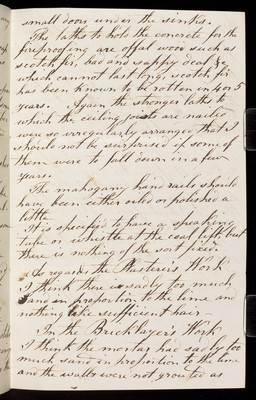 small doors under the sinks.
The laths to hold the concrete for the
fireproofing are offal wood such as
scotch fir, bad and sappy deal &c
which cannot last long, scotch fir
has been known to be rotten in 4 or 5
years. Again the stronger laths to
which the ceiling joists are nailed
were so irregularly arranged that I
should not be surprised if some of
them were to fall down in a few
years.
The mahogany hand rails should
have been either oiled or polished a
little
It is specified to have a speaking
tube or whistle at the coal lift but
there is nothing of the sort fixed
As regards the Plasterer's Work
I think there is sadly too much
sand in proportion to the lime and
nothing like sufficient hair
In the Bricklayer's Work
I think the mortar had sadly too
much sand in proportion to the lime
and the walls were not grouted as